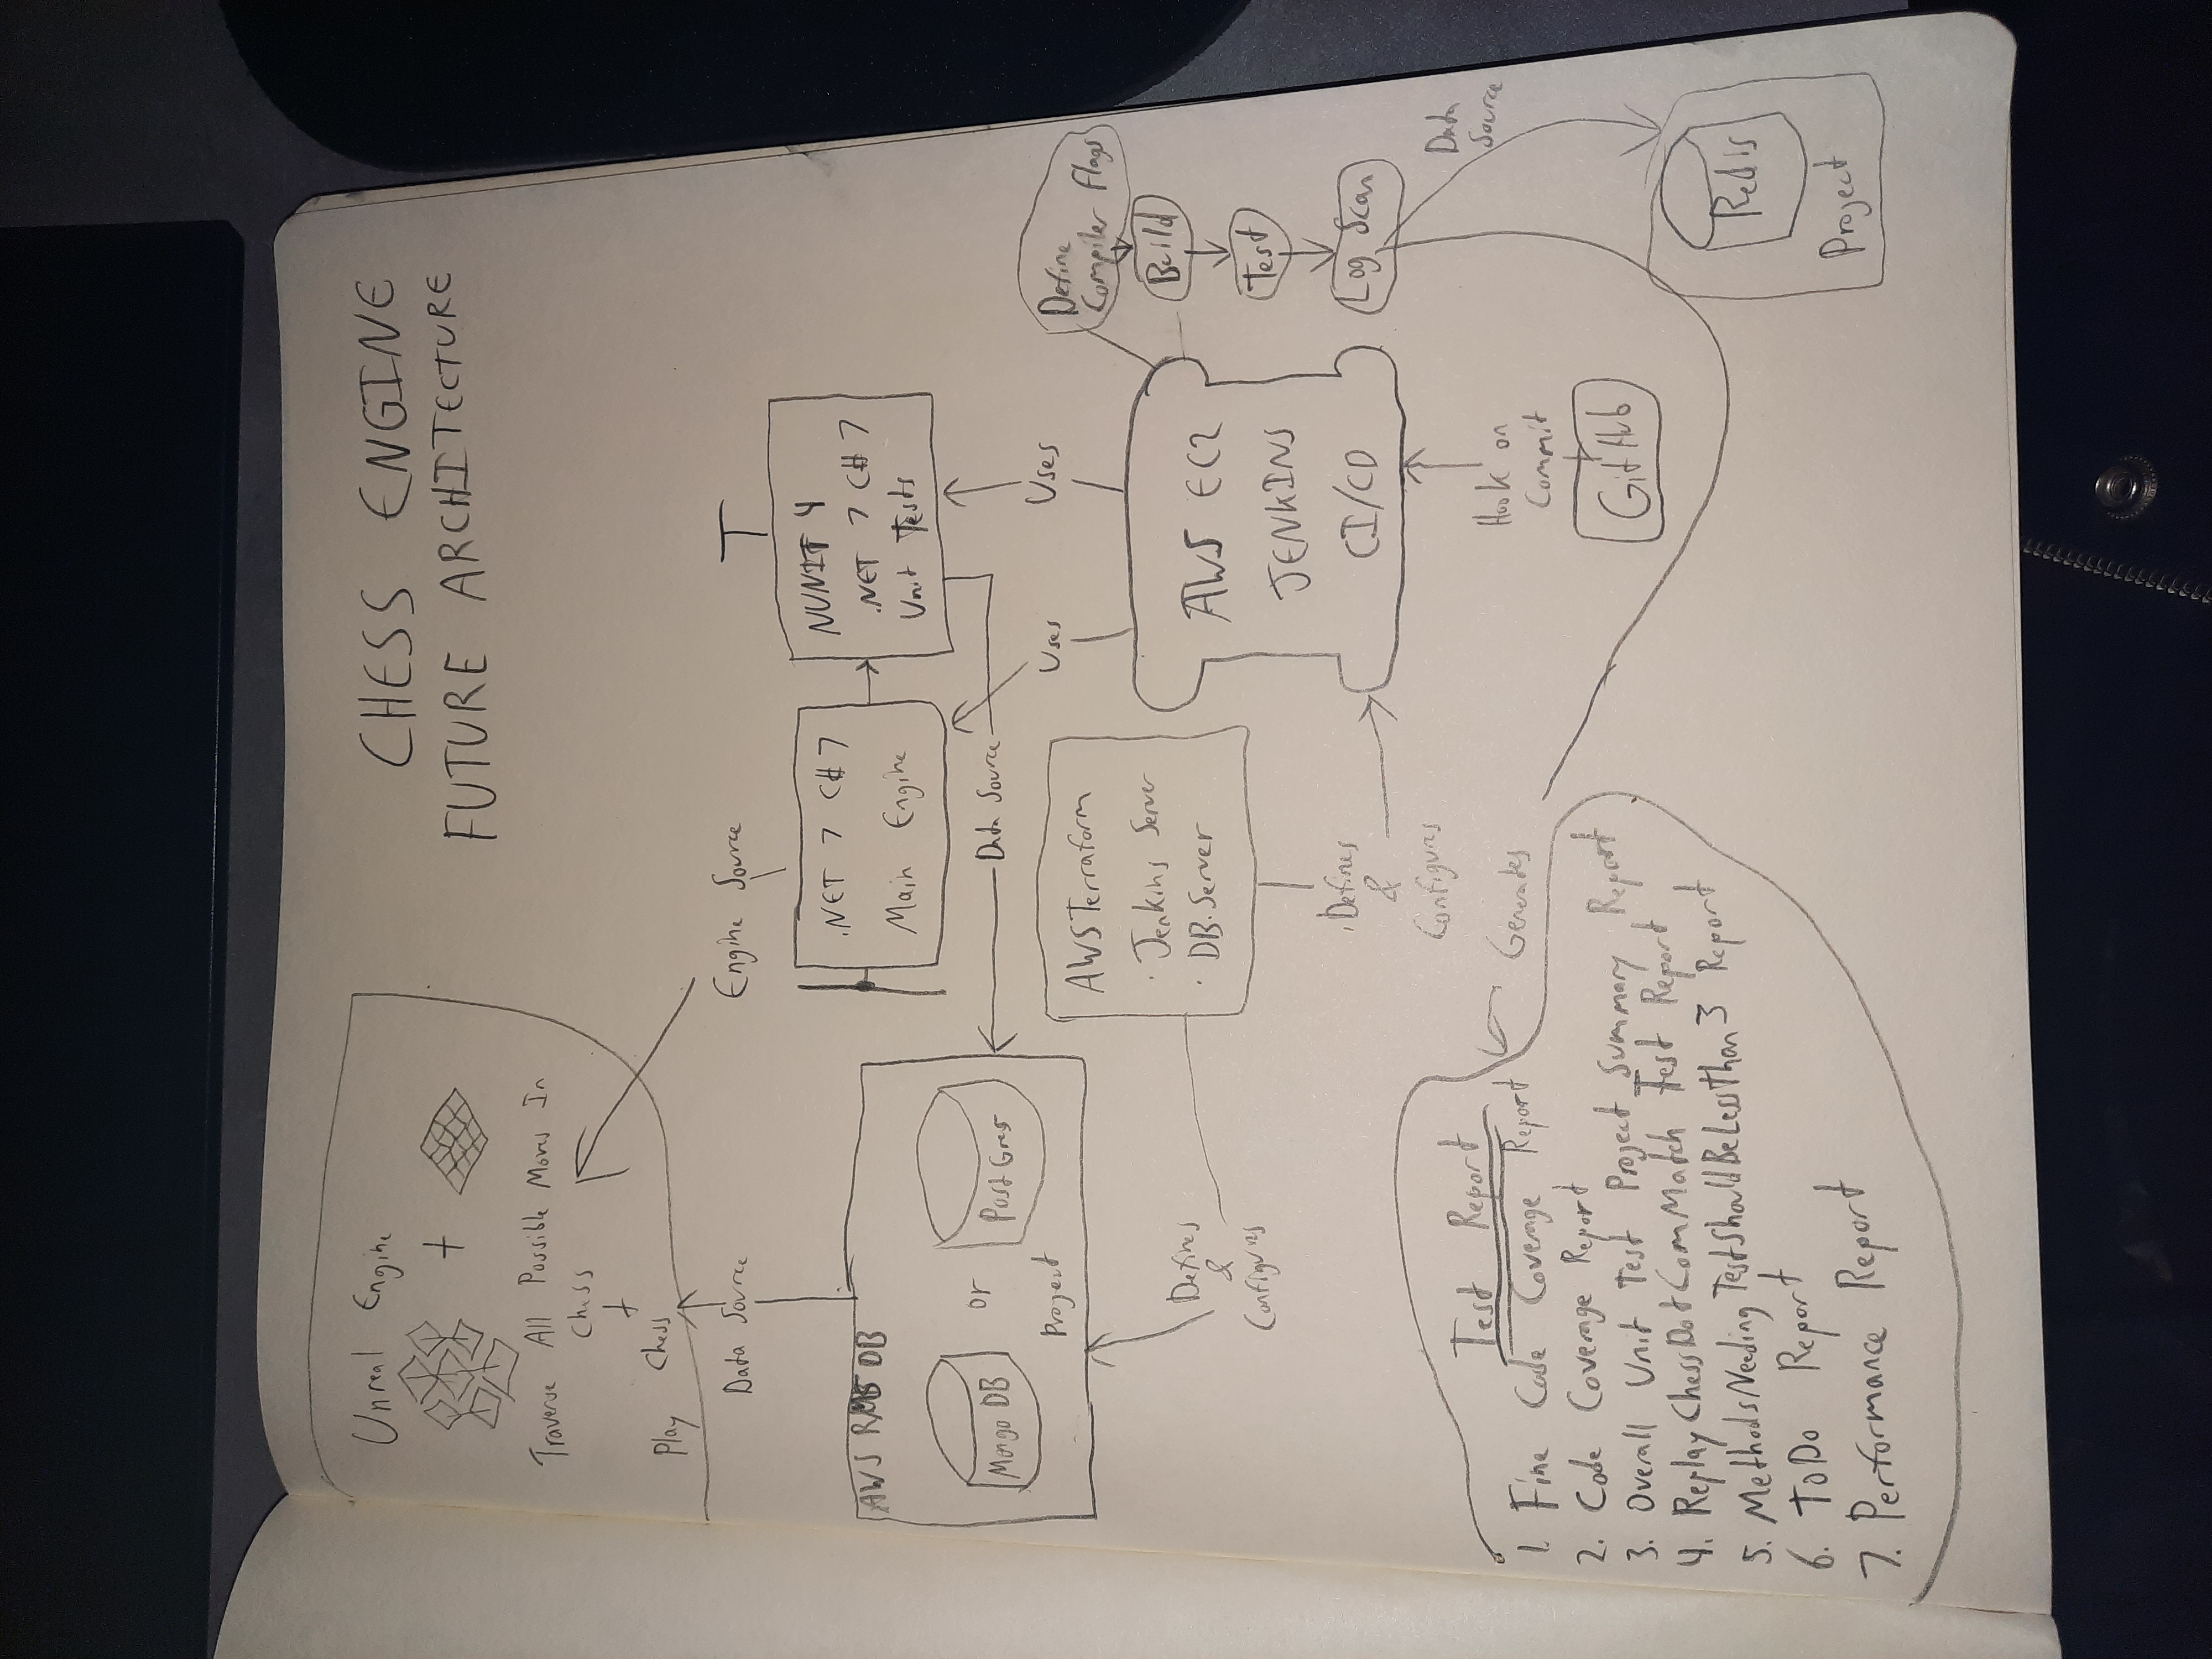 CHESS ENGINE
FUTURE ARCHITECTURE
Unreal Engine
+
Traverse All Possible Moves In
Chess
+
Play Chess
Data Source
Engine Source
T
.NET 7 C# 7
Main Engine
NUNIT 4
.NET 7 C# 7
Unit Tests
AWS DB
Mongo DB
or
PostGres
Project
Data Source
Uses
Uses
AWS Terraform
· Jenkins Server
· DB Server
Defines
&
Configures
Defines
&
Configures
AWS EC2
JENKINS
CI/CD
Define
Compiler Flags
Build
Test
Log Scan
Data
Source
Hook on
Commit
GitHub
Redis
Project
Generates
Test Report
1. Fine Code Coverage Report
2. Code Coverage Report
3. Overall Unit Test Project Summary Report
4. ReplayChessDotComMatch Test Report
5. MethodsNeedingTestShouldBeLessThan3 Report
6. ToDo Report
7. Performance Report